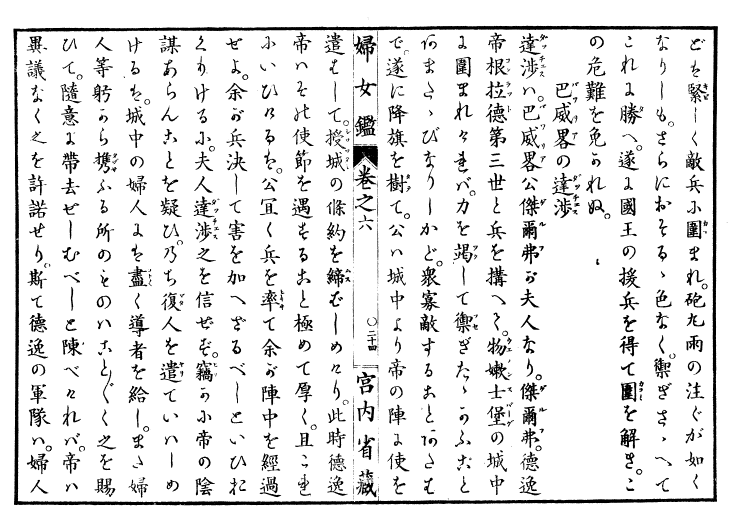 どは緊しく敵兵に圍まれ。砲丸雨の注ぐが如く
なりしも。さらにおそるゝ色なく。禦ぎさゝへて
これに勝へ。遂に國王の援兵を得て圍を解き。こ
の危難を免かれぬ。
巴威畧の達渉
達渉ハ。巴威畧公傑爾弗が夫人なり。傑爾弗。德逸
帝根拉德第三世と兵を搆へて。物嫩士堡の城中
に圍まれけれバ。力を竭して禦ぎたゝかふこと
あまたゝびなりしかど。衆寡敵することあたは
で。遂に降旗を樹て。公ハ城中より帝の陣に使を
婦女鑑 卷之六 ○二十四 宮内省藏
遣はして。授城の條約を締ばしめけり。此時德逸
帝ハその使節を遇すること極めて厚く。且これ
にいひけるは。公宜く兵を率て余が陣中を經過
せよ。余が兵決して害を加へざるべしといひお
くりけるに。夫人達渉之を信ぜず。竊かに帝の陰
謀あらんことを疑ひ。乃ち復人を遣ていはしめ
けるは。城中の婦人には盡く導者を給し。また婦
人等躬から携ふる所のものハこと〴〵く之を賜
ひて。隨意に帶去せしむべしと陳べけれバ。帝ハ
異議なく之を許諾せり。斯て德逸の軍隊ハ。婦人